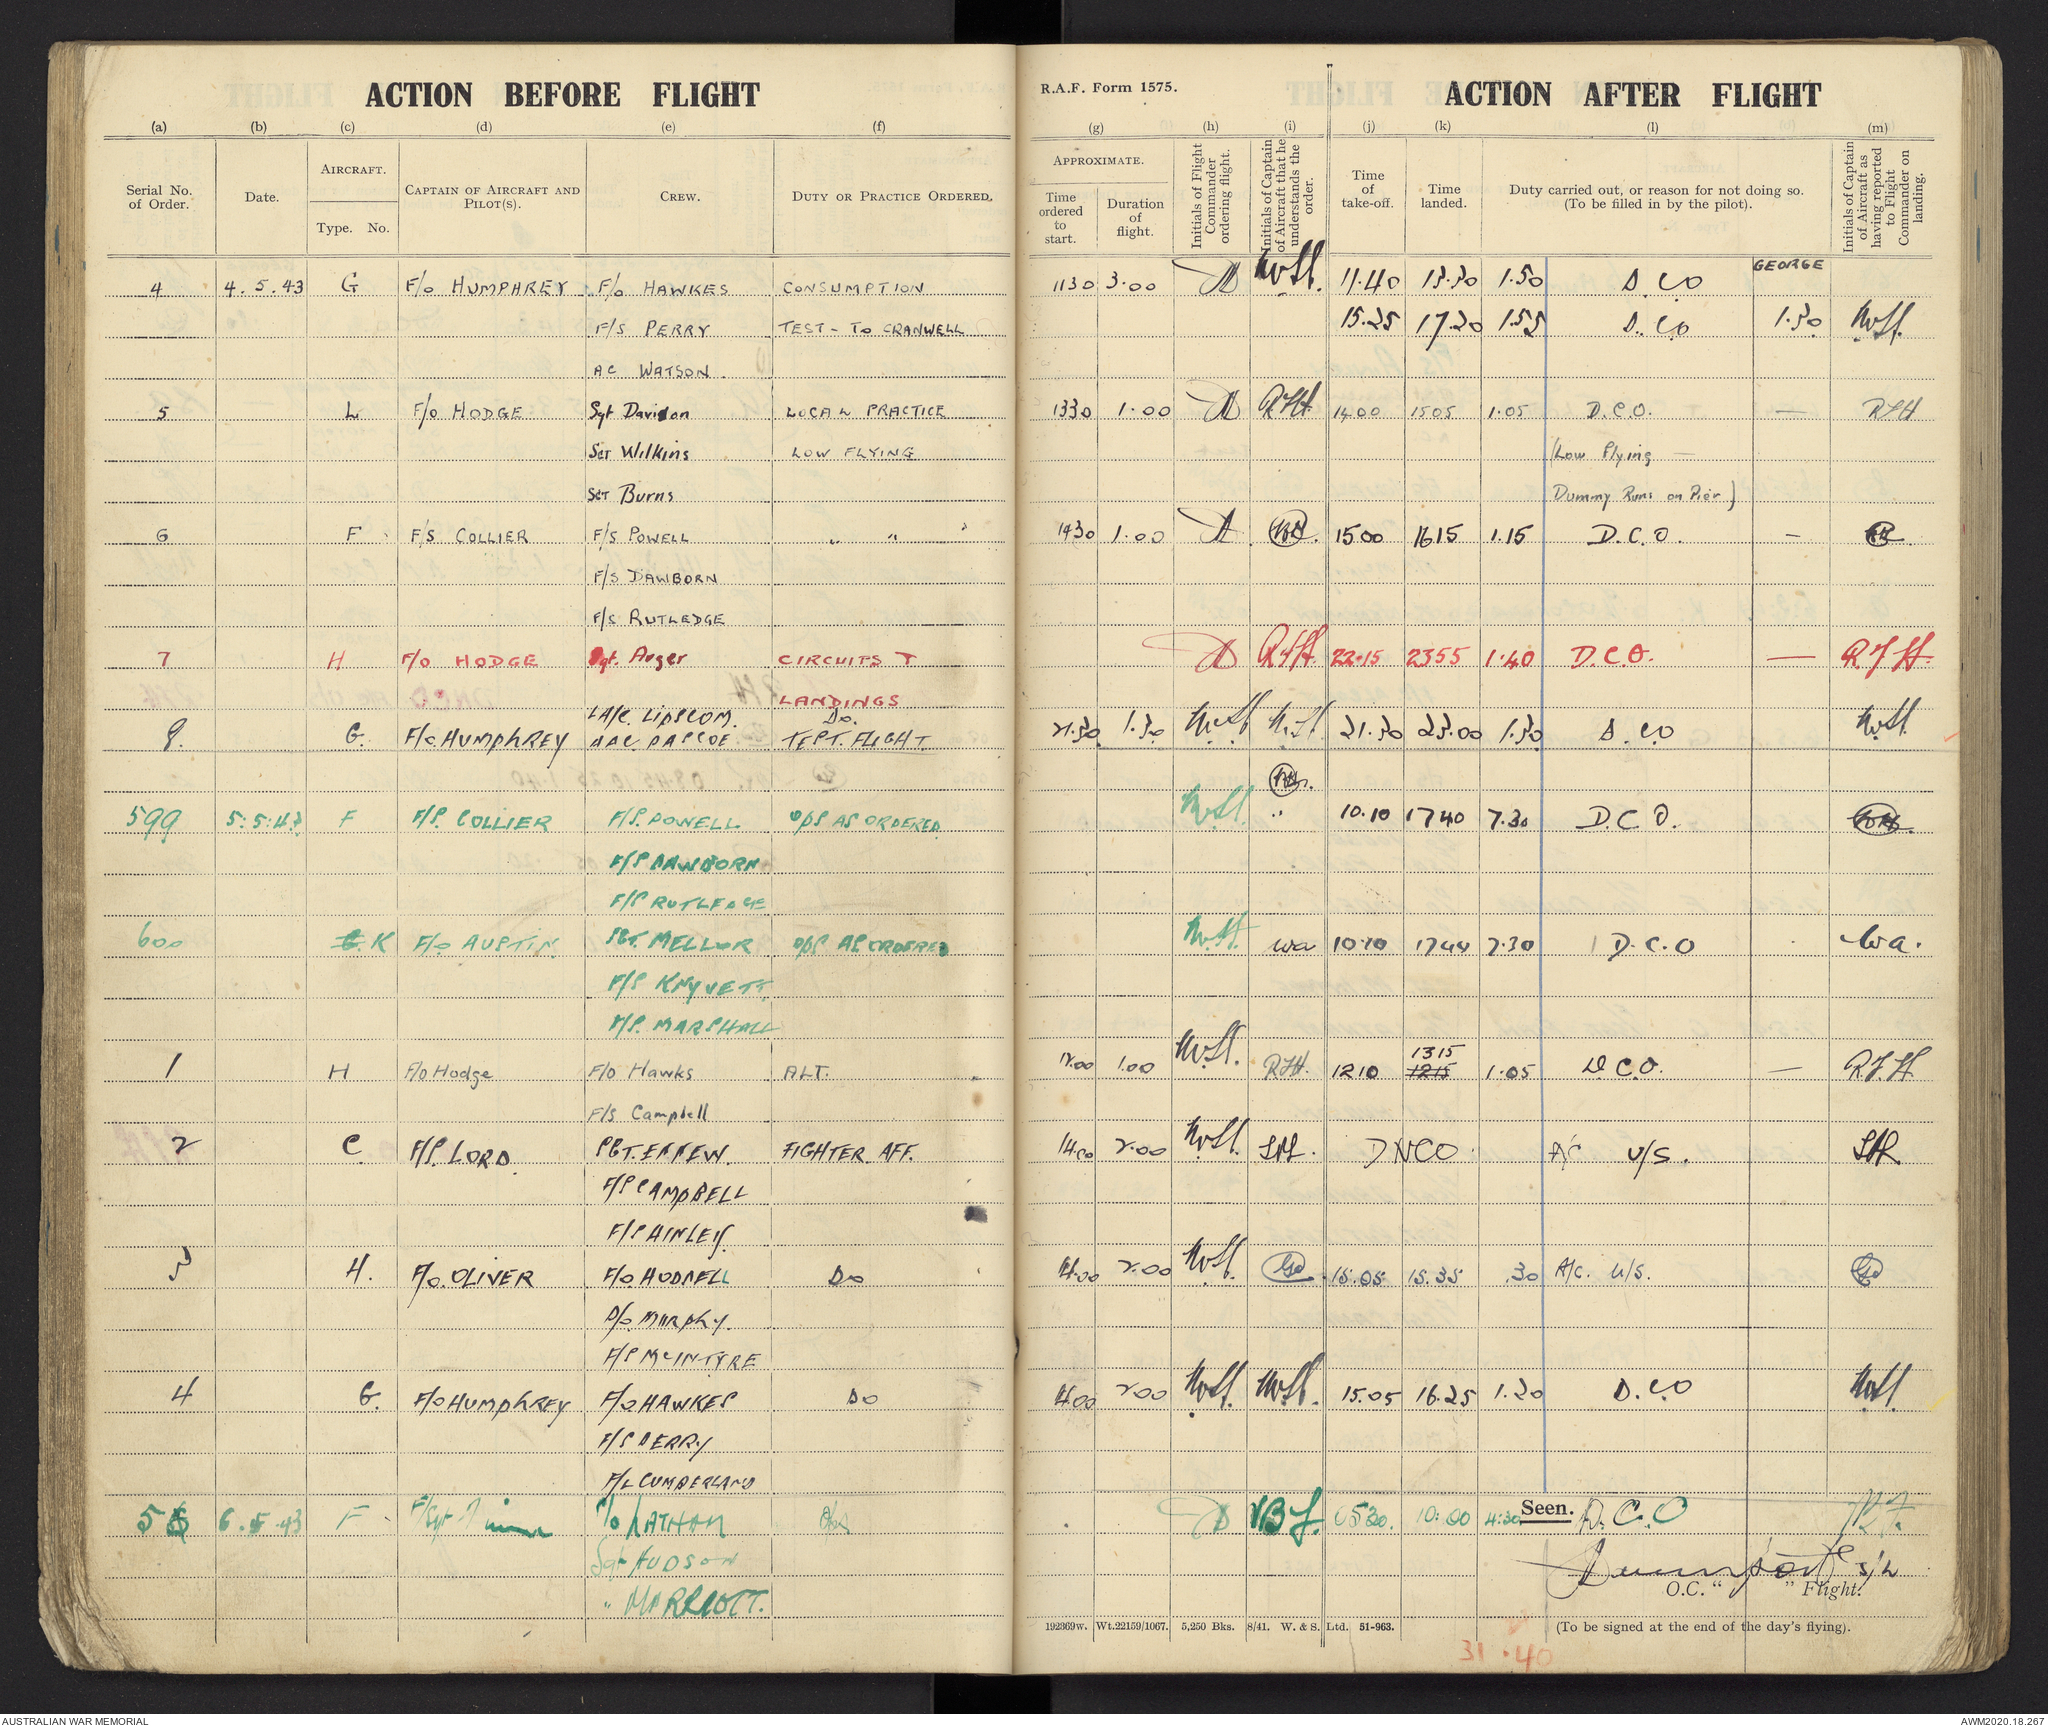 ACTION BEFORE FLIGHT
(a) (b) (c) (d) (e) (f)
Serial No. of Order. Date. AIRCRAFT. Type. No. CAPTAIN OF AIRCRAFT AND PILOT(S). CREW. DUTY OR PRACTICE ORDERED.
R.A.F. Form 1575. ACTION AFTER FLIGHT
(g) (h) (i) (j) (k) (l) (m)
APPROXIMATE. Time ordered to start. Duration of flight. Initials of Flight Commander ordering flight. Initials of Captain of Aircraft that he understands the order. Time of take-off. Time landed. Duty carried out, or reason for not doing so. (To be filled in by the pilot). Initials of Captain of Aircraft as having reported to Flight Commander on landing.
GEORGE
4 4.5.43 G F/O HUMPHREY F/O HAWKES CONSUMPTION 1130 3.00 11.40 13.30 1.50 D.CO
F/S PERRY TEST - TO CRANWELL 15.25 17.20 1.55 D.CO 1.30
AC WATSON
5 L F/O HODGE Sgt Davidon LOCAL PRACTICE 1330 1.00 RFH. 14.00 1505 1.05 D.C.O. — RFH
SGT Wilkins LOW FLYING (Low Flying —
SGT Burns Dummy Runs on Pier)
6 F F/S COLLIER F/S POWELL " " 1430 1.00 15.00 1615 1.15 D.C.O. —
F/S DAWBORN
F/S RUTLEDGE
7 H F/O HODGE Sgt. Arger CIRCUITS + RFH. 22.15 2355 1.40 D.C.O. — R.F.H.
LANDINGS
LA/C. LIPSCOM. Do.
8. G. F/O. HUMPHREY AAC PASCOE TEST. FLIGHT 21.30 1.30 21.30 23.00 1.30 D.CO
599 5.5.43 F F/S. COLLIER F/S. POWELL OPS AS ORDERED " 10.10 1740 7.30 D.C.O.
F/S DAWBORN
F/S RUTLEDGE
600 G. K F/O AUSTIN. SGT. MELLOR OPS AS ORDERED wa 10.10 1740 7.30 D.C.O wa.
F/S KNYVETT.
F/S. MARSHALL
1 H F/O Hodge F/O Hawks ALT. 12.00 1.00 RFH. 1210 1315 1215 1.05 D.C.O. — R.F.H.
F/S Campbell
2 C F/S. LORD. SGT. EPPEW. FIGHTER AFF. 14.00 2.00 DNCO A/C U/S.
F/S CAMPBELL
F/S HINLEY.
3 H. F/O. OLIVER F/O HODNELL Do 14.00 2.00 15.05 15.35 .30 A/C. U/S.
P/O. MURPHY.
F/S MCINTYRE
4 G. F/O HUMPHREY F/O HAWKES Do 14.00 2.00 15.05 16.25 1.20 D.CO
F/S PERRY
F/L CUMBERLAND
5 6.5.43 F F/Sgt P/O NATHAN Ops 0530. 10:00 4:30 Seen. D.C.O
Sgt HUDSON
" MARRIOTT. S/L
O.C. " " Flight.
192369w. Wt.22159/1067. 5,250 Bks. 8/41. W. & S. Ltd. 51-963. (To be signed at the end of the day's flying).
31.40
AUSTRALIAN WAR MEMORIAL
AWM2020.18.267